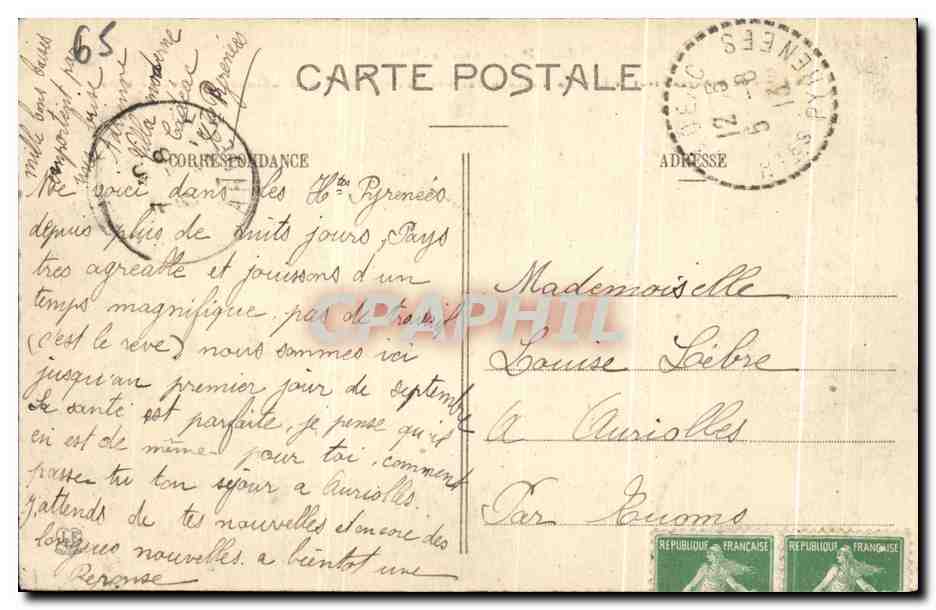 65
mille bons baisers
importent par
Marianne
Villa moderne
Htes Pyrénées
CARTE POSTALE
CORRESPONDANCE
ADRESSE
12 8
6 12
PYRENEES
HTES
Me voici dans les Htes Pyrenées
depuis plus de huits jours, Pays
tres agreable et jouissons d'un
temps magnifique. pas de travail
(c'est le reve) nous sommes ici
jusqu'au premier jour de septembre
La santé est parfaite, je pense qu'il
en est de même pour toi, comment
passe tu ton séjour a Auriolles.
J'attends de tes nouvelles et encore des
longues nouvelles. a bientot une
Reponse
Mademoiselle
Louise Lèbre
A Auriolles
Par Ruoms
CPAPHIL
REPUBLIQUE FRANÇAISE
REPUBLIQUE FRANÇAISE